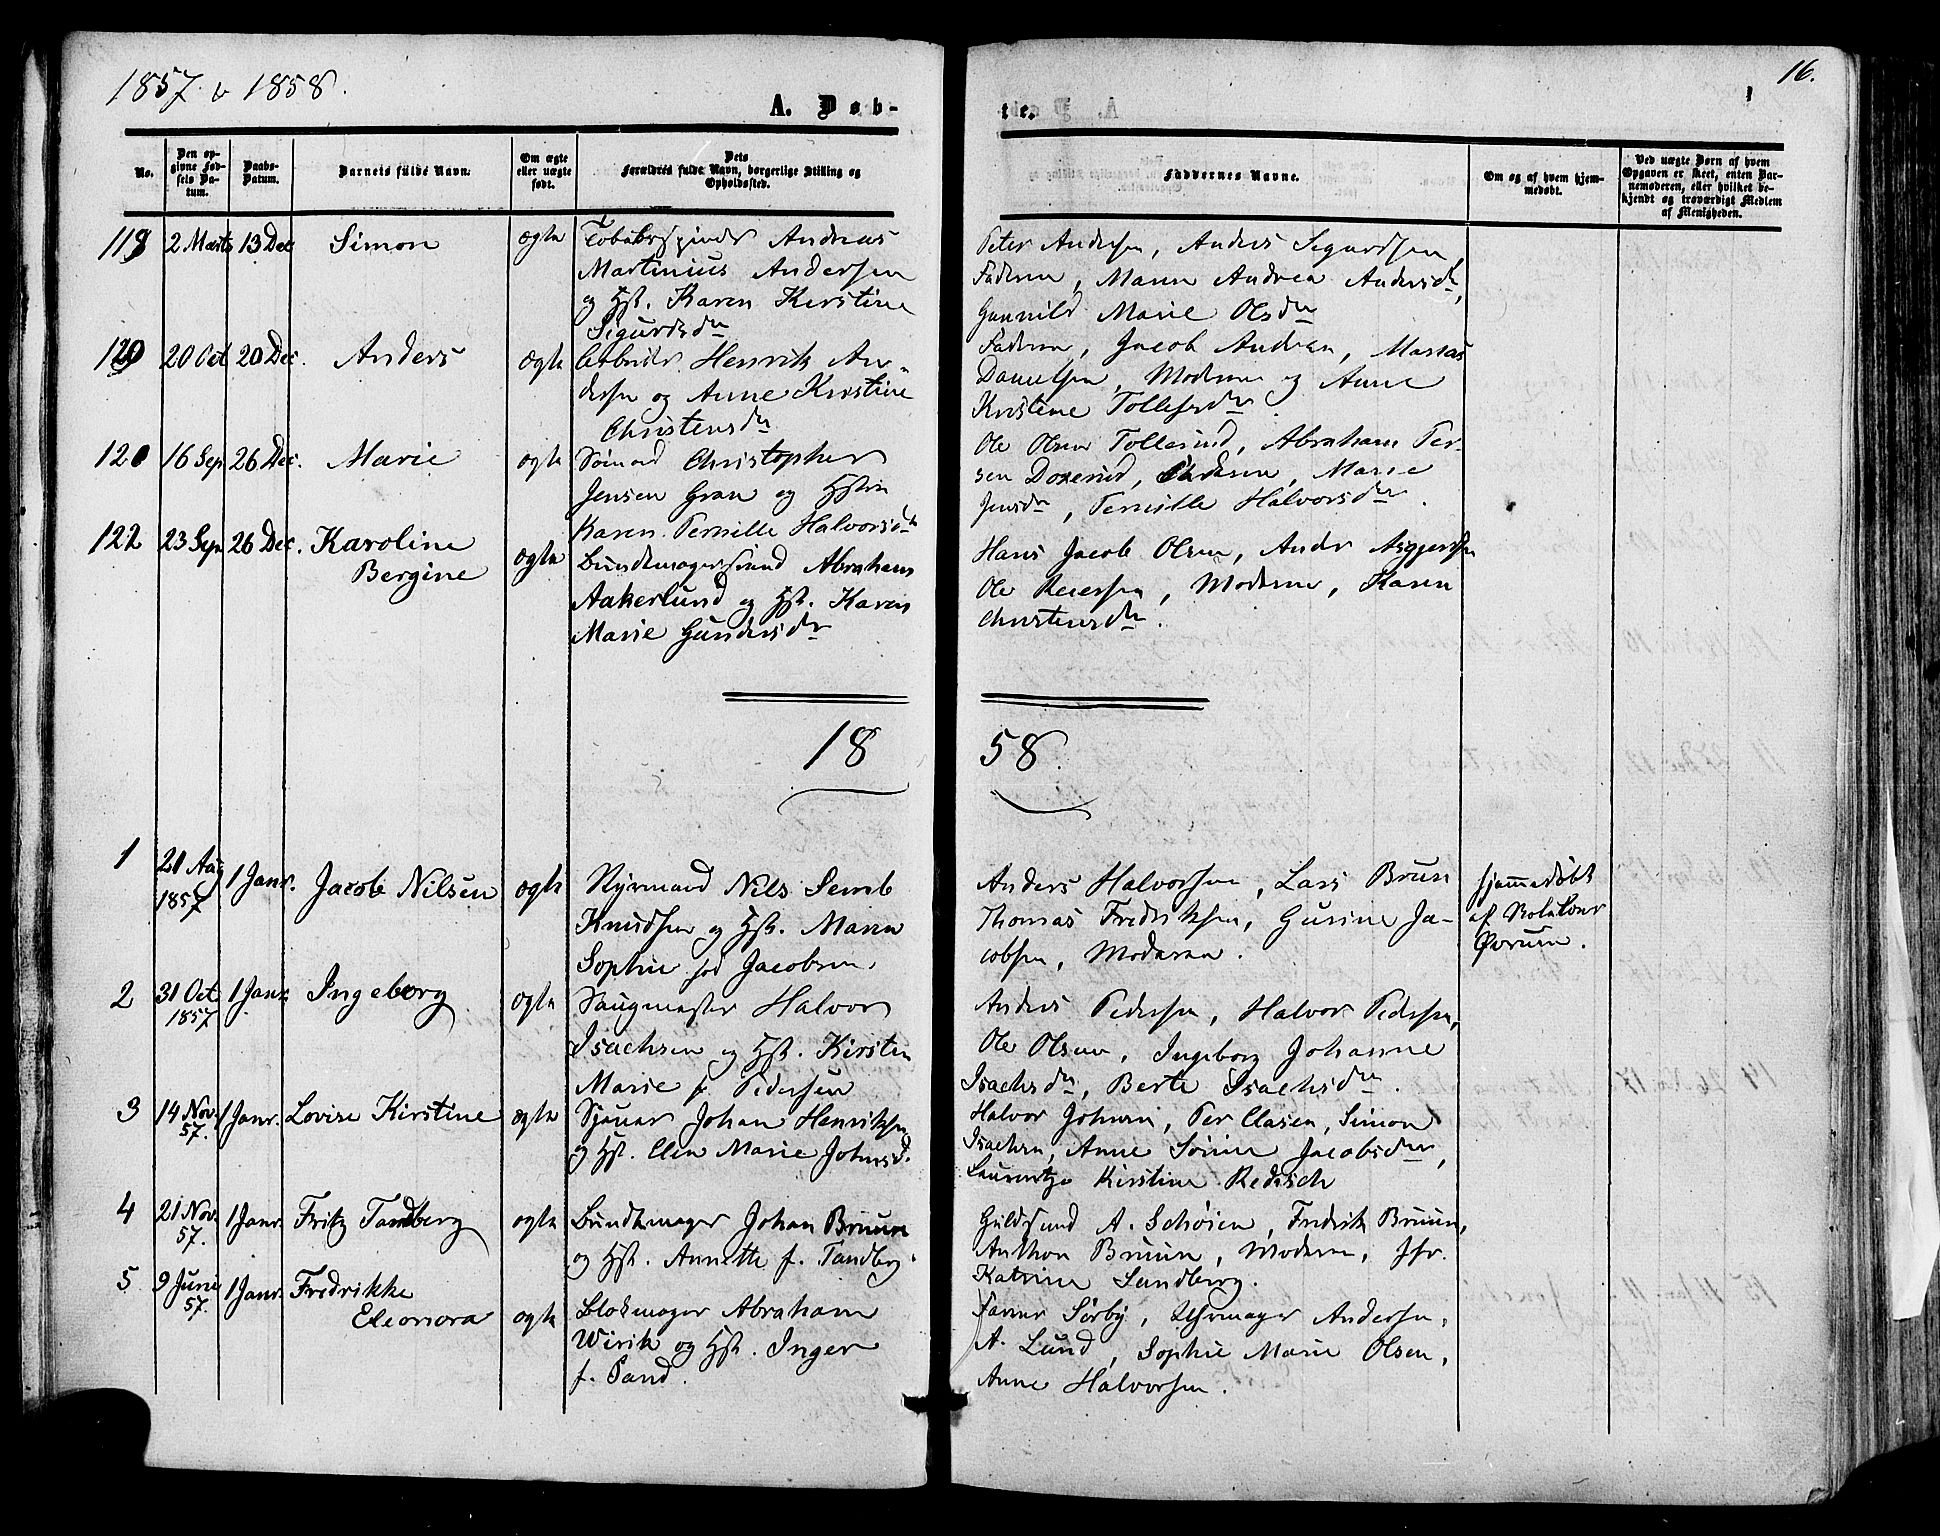 1857 & 1858.
16.
A. Døb-
te.
No.
Den op-
givne Fød-
sels Da-
tum.
Daabs-
Datum.
Barnets fulde Navn.
Om ægte
eller uægte
født.
Dets
Forældres fulde Navn, borgerlige Stilling og
Opholdssted.
Faddernes Navne.
Om og af hvem hjem-
medøbt.
Ved uægte Børn af hvem
Opgaven er skeet, enten Bar-
nemoderen, eller hvilket be-
kjendt og troværdigt Medlem
af Menigheden.
119 2 Marts 13 Dec Simon ægte
Tobaksspinder Andreas
Martinius Andersen
og Hst. Karen Kirstine
Sigurdsdtr
Peter Andersen, Anders Sigurdsen
Faderen, Maren Andrea Andersdtr,
Gunnild Marie Olsdtr
120 20 Oct 20 Dec. Anders ægte
Arbeider Henrik An-
dersen og Anne Kirstine
Christensdtr
Faderen, Jacob Andrea, Mathias
Danielsen, Moderen og Anne
Kristine Tollefsdtr
120 16 Sep 26 Dec. Marie ægte
Sømand Christopher
Jensen Gran og Hstru
Karen Pernille Halvorsdtr
Ole Olsen Tollerud, Abraham Per-
sen Dorerud, Faderen, Marie
Jensdtr, Pernille Halvorsdtr.
122 23 Sep 26 Dec. Karoline
Bergine ægte
Bundtmagersvend Abraham
Aakerlund og Hst. Karen
Marie Gundersdtr
Hans Jacob Olsen, Andr Aggersen
Ole Reiersen, Moderen, Karen
Christensdtr.
18 58.
1 21 Aug
1857 1 Janr. Jacob Nilsen ægte
Styrmand Nils Semb
Knudsen og Hst. Maren
Sophie fød Jacobsen.
Anders Halvorsen, Lars Brun
Thomas Fredriksen, Gusine Ja-
cobsen, Moderen.
hjemmedøbt
af
Øvrum.
2 31 Oct
1857 1 Janr. Ingeborg ægte
Saugmester Halvor
Isachsen og Hst. Kirsten
Marie f. Pedersen
Anders Pedersen, Halvor Pedersen,
Ole Olsen, Ingeborg Johanne
Isachsdtr, Berte Isachsdtr.
3 14 Nov.
57. 1 Janr. Lovise Kirstine ægte
Sjouer Johan Henriksen
og Hst. Elen Marie Johnsd.
Halvor Johnsen, Per Clasen, Simon
Isachsen, Anne Sørine Jacobsdtr,
Laurentze Kirstine Redisch
4 21 Nov.
57. 1 Janr. Fritz Tandberg ægte
Bundtmager Johan Bruun
og Hst. Annette f. Tandberg.
Guldsmd A. Schøien, Fredrik Bruun,
Anthon Bruun, Moderen, Jfr.
Katrine Sundberg.
5 9 Juni
57. 1 Janr. Fredrikke
Eleonora ægte
Blokmager Abraham
Wirik og Hst. Inger
f. Sand.
Farver Sørby, Uhrmager Andersen,
A. Lund, Sophie Marie Olsen,
Anne Halvorsen.